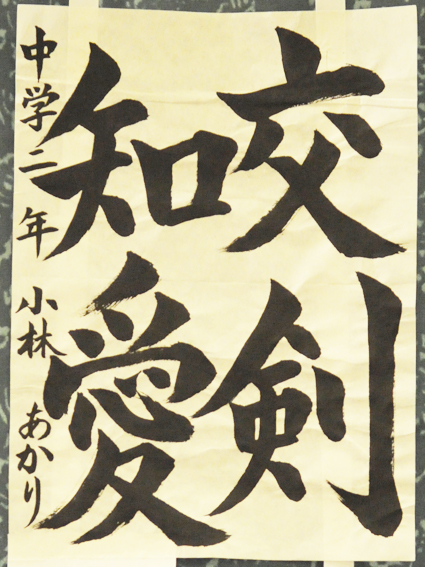 交剣
知愛
中学二年 小林 あかり